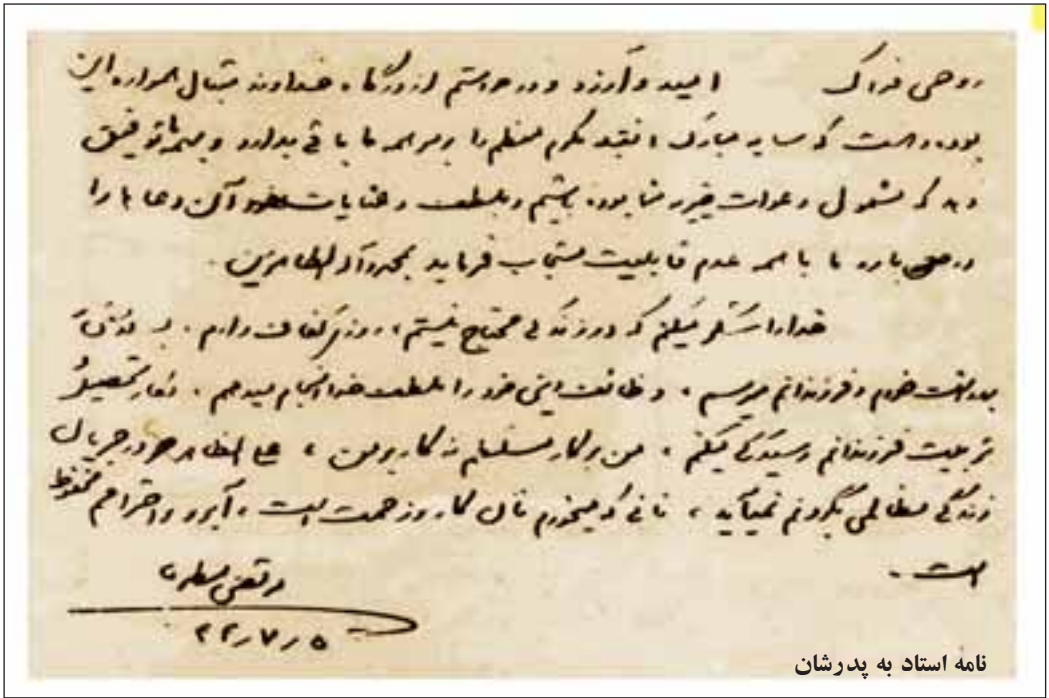 روحی فداک امید و آرزو و درخواستم از درگاه خداوند متعال همواره این
بوده و هست که سایه مبارک معظم را بر سر همه ما باقی بدارد و بهمه توفیق
دهد که مشمول دعوات خیریه شما بوده باشیم و بلطف و عنایات خود آن دعاها را
درباره ما با همه عدم قابلیت مستجاب فرماید بمحمد و آله الطاهرین.
خدا را شکر میکنم که در زندگی محتاج نیستم، روزی کفاف دارم. به
بهداشت خودم و فرزندانم میرسم، وظائف دینی خود را بلطف خدا انجام میدهم،
تربیت فرزندانم رسیدگی میکنم، من بر کار مسلطم نه کار بر من، علی الظاهر در جریان
زندگی مظالمی بگردنم نمیآید، نانی که میخورم نان کار و زحمت است، آبرو و احترامم محفوظ
است.
مرتضی مطهری
۵ر۷ر۳۳
نامه استاد به پدرشان